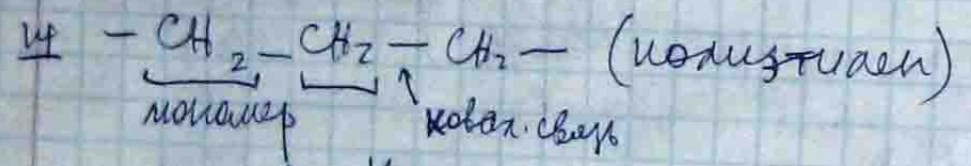 – CH₂ – CH₂ – CH₂ – (полиэтилен)
мономер ковал. связь